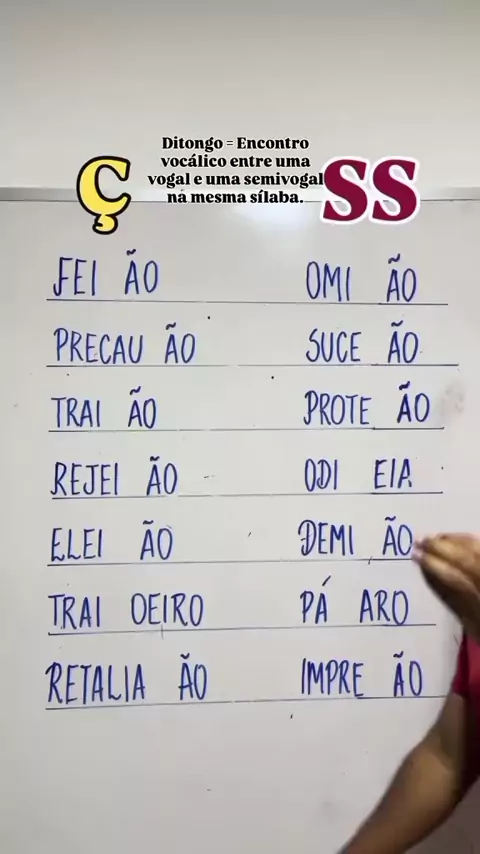 Ditongo = Encontro
vocálico entre uma
vogal e uma semivogal
na mesma sílaba.
Ç SS
FEI ÃO OMI ÃO
PRECAU ÃO SUCE ÃO
TRAI ÃO PROTE ÃO
REJEI ÃO ODI EIA
ELEI ÃO DEMI ÃO
TRAI OEIRO PÁ ARO
RETALIA ÃO IMPRE ÃO